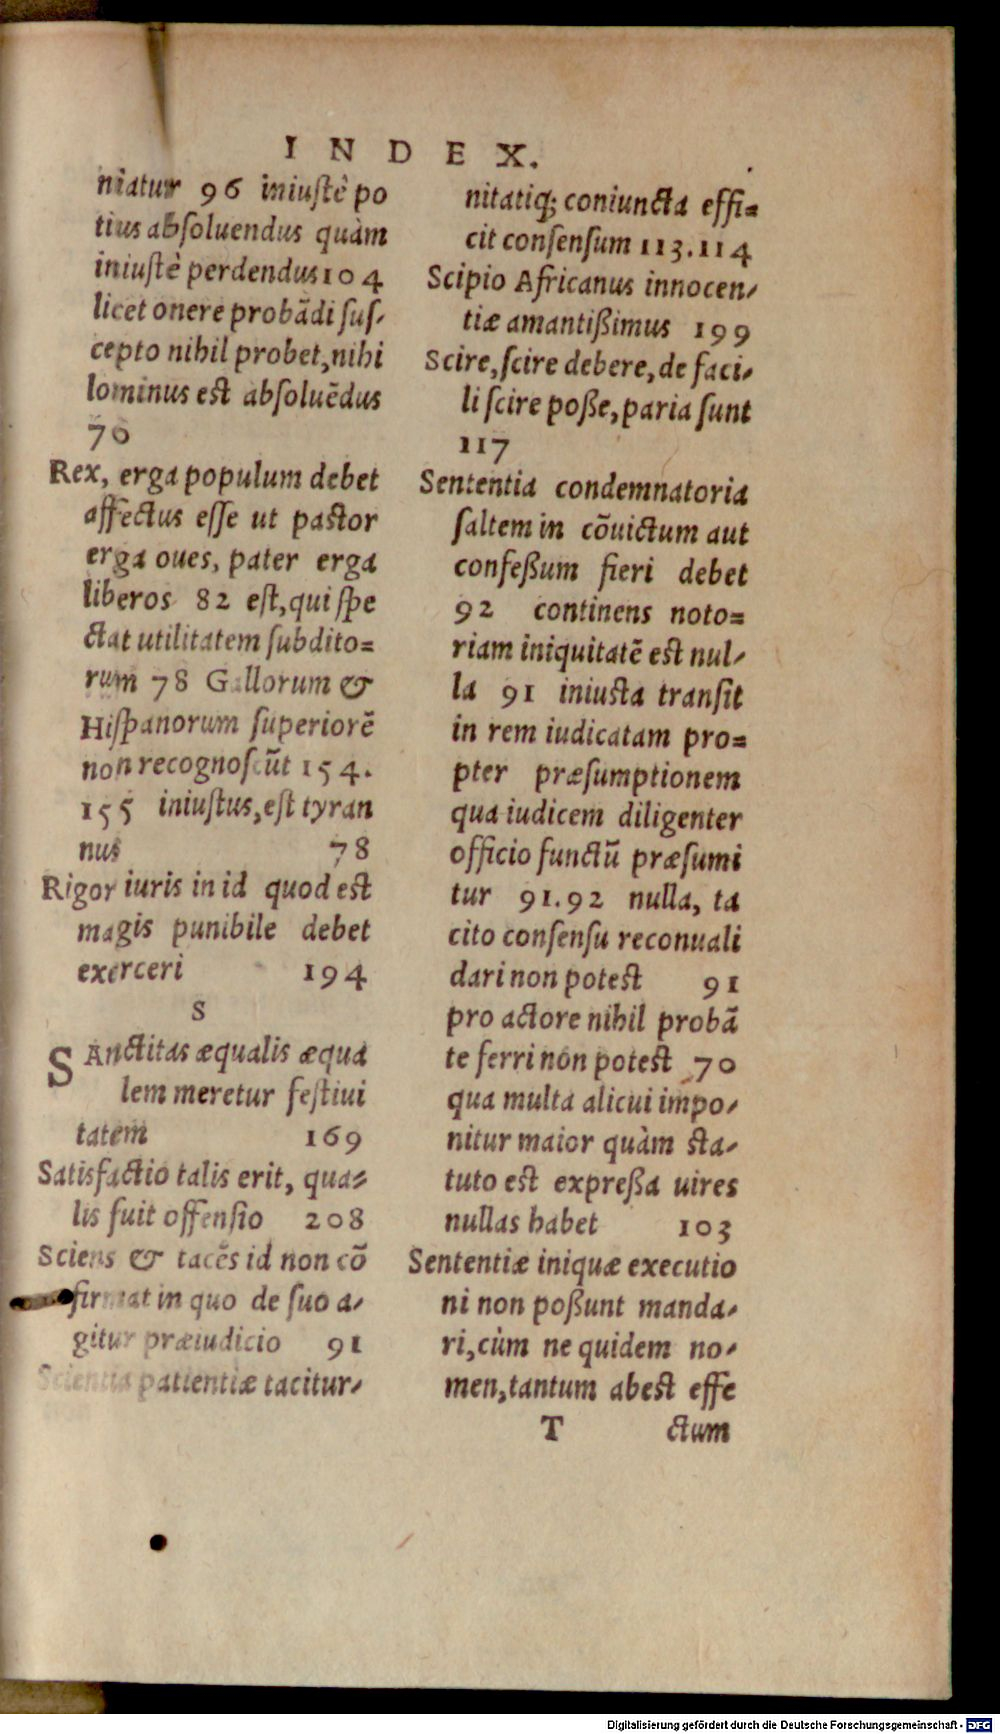 INDEX.
niatur 96 iniuſtè po
tius abſoluendus quàm
iniuſtè perdendus 104
licet onere probādi ſuſ-
cepto nihil probet, nihi
lominus est abſoluēdus
70
Rex, erga populum debet
affectus eſſe ut paſtor
erga oues, pater erga
liberos 82 eſt, qui ſpe
ctat utilitatem ſubdito=
rum 78 Gallorum &
Hiſpanorum ſuperiorē
non recognoſcūt 154.
155 iniuſtus, eſt tyran
nus 78
Rigor iuris in id quod est
magis punibile debet
exerceri 194
S
SAnctitas æqualis æqua
lem meretur feſtiui
tatem 169
Satisfactio talis erit, qua=
lis fuit offenſio 208
Sciens & tacēs id non cō
firmat in quo de ſuo a-
gitur præiudicio 91
Scientia patientiæ tacitur-
nitatiq; coniuncta effi=
cit conſenſum 113.114
Scipio Africanus innocen-
tiæ amantißimus 199
Scire, ſcire debere, de faci-
li ſcire poße, paria ſunt
117
Sententia condemnatoria
ſaltem in cōuictum aut
confeßum fieri debet
92 continens noto=
riam iniquitatē est nul-
la 91 iniuſta tranſit
in rem iudicatam pro=
pter præſumptionem
qua iudicem diligenter
officio functū præſumi
tur 91.92 nulla, ta
cito conſenſu reconuali
dari non potest 91
pro actore nihil probā
te ferri non potest 70
qua multa alicui impo-
nitur maior quàm ſta-
tuto est expreßa uires
nullas habet 103
Sententiæ iniquæ executio
ni non poßunt manda-
ri, cùm ne quidem no-
men, tantum abest effe
T ctum
Digitalisierung gefördert durch die Deutsche Forschungsgemeinschaft - DFG